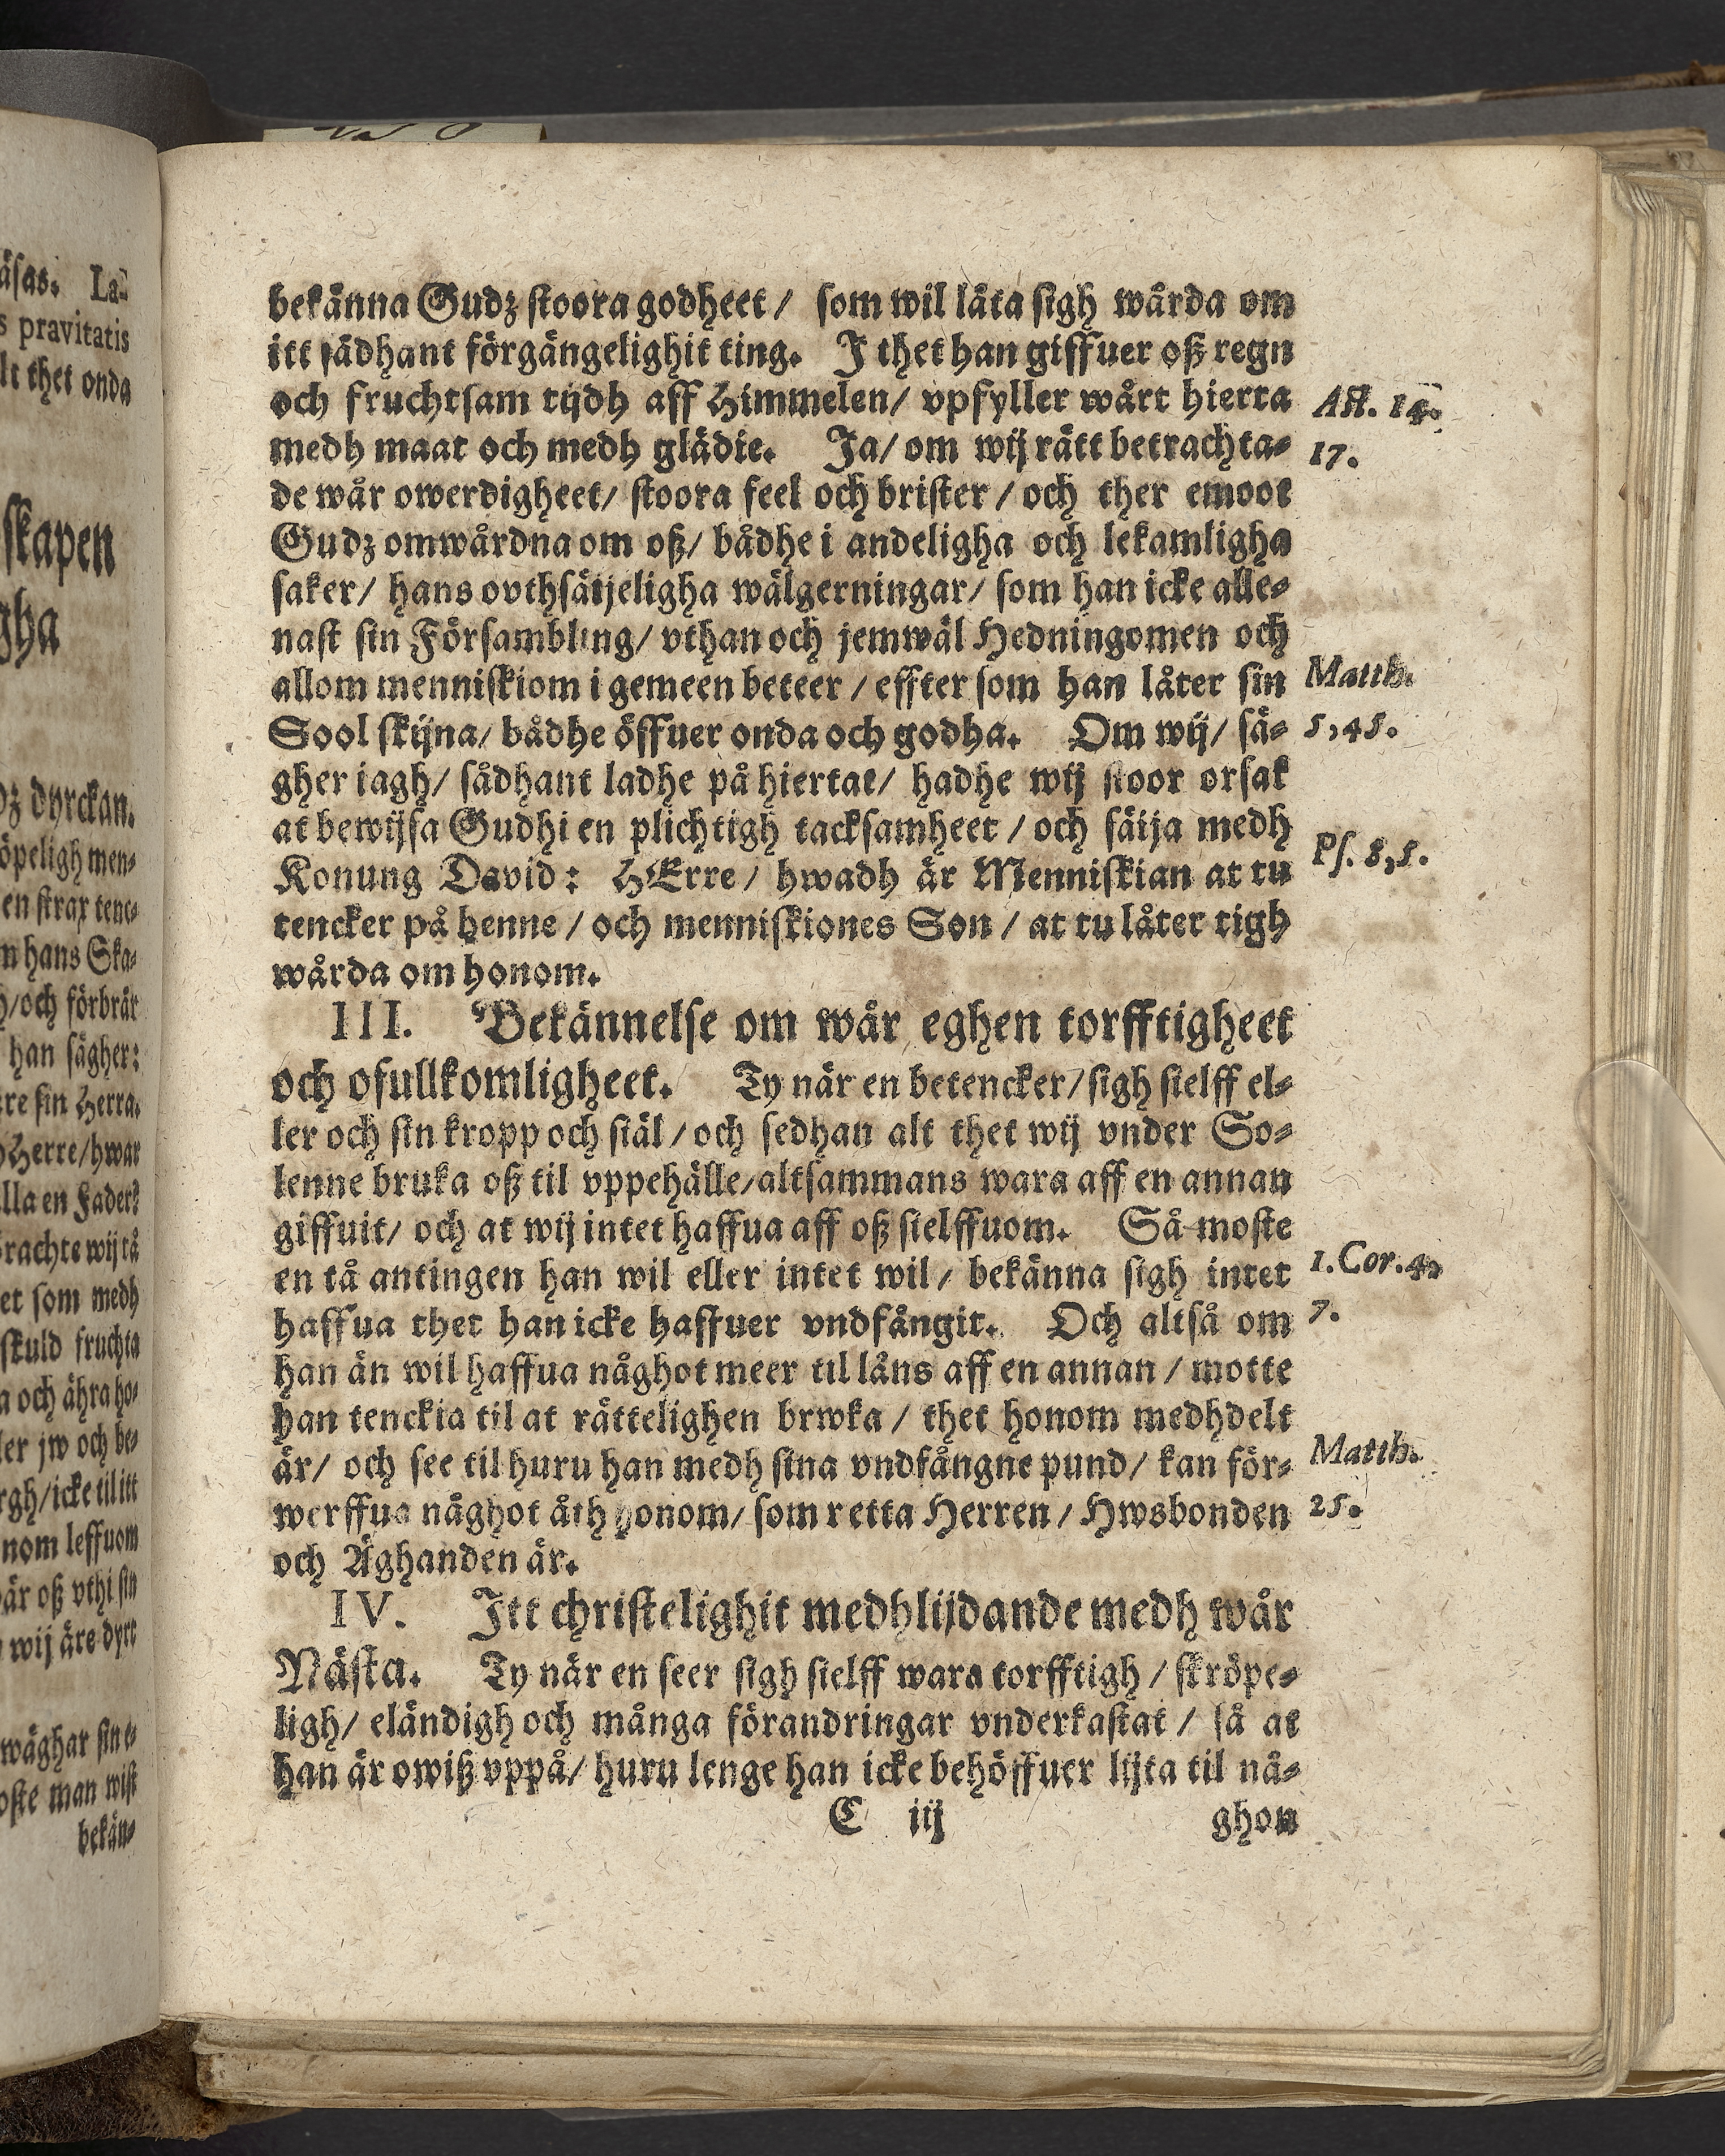 äsas. La-
s pravitatis
lt thet onda
skapen
gha
dz dyrckan.
öpeligh men-
en strax tenc-
n hans Ska-
h/och förbrär
han sägher:
re sin Herra.
Herre/hwar
lla en Fader?
rachte wij tå
et som medh
skuld fruchta
a och ähra ho-
ler jw och be-
rgh/icke til itt
nom leffuom
är oß vthi sin
wij äre dyrt
wäghar sin
oste man wist
bekän-
bekänna Gudz stoora godheet / som wil låta sigh wårda om
itt sådhant förgängelighit ting. I thet han giffuer oß regn
och fruchtsam tijdh aff Himmelen/ vpfyller wårt hierta
Act. 14.
medh maat och medh glädie. Ja/ om wij rätt betrachta-
17.
de wår owerdigheet/ stoora feel och brister / och ther emoot
Gudz omwårdna om oß/ bådhe i andeligha och lekamligha
saker/ hans ovthsäijeligha wälgerningar/ som han icke alle-
nast sin Försambling/ vthan och jemwäl Hedningomen och
allom menniskiom i gemeen beteer / effter som han låter sin
Matth.
Sool skijna/ bådhe öffuer onda och godha. Om wij/ sä-
5,45.
gher iagh/ sådhant ladhe på hiertat/ hadhe wij stoor orsak
at bewijsa Gudhi en plichtigh tacksamheet / och säija medh
Konung David: HErre / hwadh är Menniskian at tu
Ps. 8,5.
tencker på henne / och menniskiones Son / at tu låter tigh
wårda om honom.
III. Bekännelse om wår eghen torfftigheet
och ofullkomligheet. Ty när en betencker/ sigh sielff el-
ler och sin kropp och siäl / och sedhan alt thet wij vnder So-
lenne bruka oß til vppehälle/altsammans wara aff en annan
giffuit/ och at wij intet haffua aff oß sielffuom. Så moste
en tå antingen han wil eller intet wil / bekänna sigh intet
1. Cor. 4,
haffua thet han icke haffuer vndfångit. Och altså om
7.
han än wil haffua någhot meer til låns aff en annan / motte
han tenckia til at rättelighen brwka / thet honom medhdelt
är/ och see til huru han medh sina vndfångne pund/ kan för-
Matth.
werffua någhot åth honom/ som retta Herren / Hwsbonden
25.
och Äghanden är.
IV. Itt christelighit medhlijdande medh wår
Nästa. Ty när en seer sigh sielff wara torfftigh / skröpe-
ligh/ eländigh och många förandringar vnderkastat / så at
han är owiß vppå/ huru lenge han icke behöffuer lijta til nå-
C iij ghon